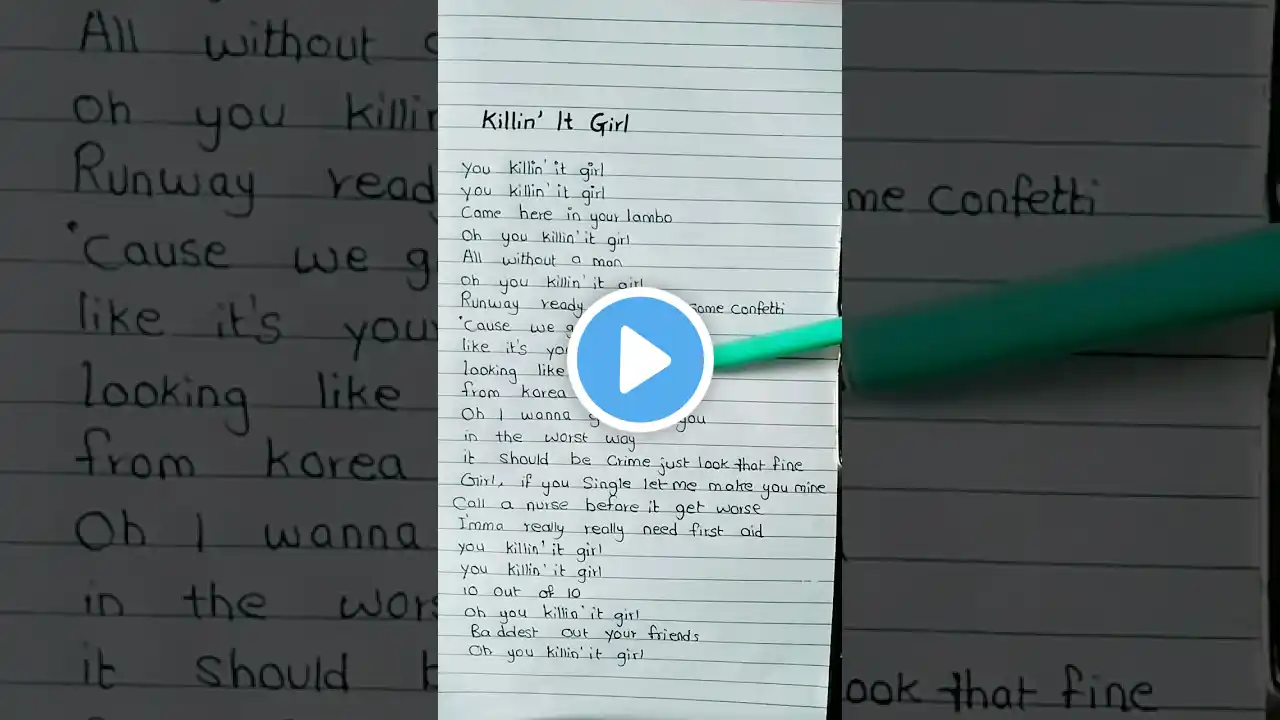 All without
Oh you
Runway
'Cause we
like it's
looking like
from korea
Oh I wanna
in the
it should
Killin' It Girl
you killin' it girl
you killin' it girl
Came here in your lambo
Oh you killin' it girl
All without a man
Oh you killin' it girl
Runway ready some confetti
'Cause we
like it's
looking like
from korea
Oh I wanna you
in the worst way
it should be Crime just look that fine
Girl, if you Single let me make you mine
Call a nurse before it get worse
I'mma really really need first aid
you killin' it girl
you killin' it girl
10 out of 10
Oh you killin' it girl
Baddest out your friends
Oh you killin' it girl
confetti
that fine